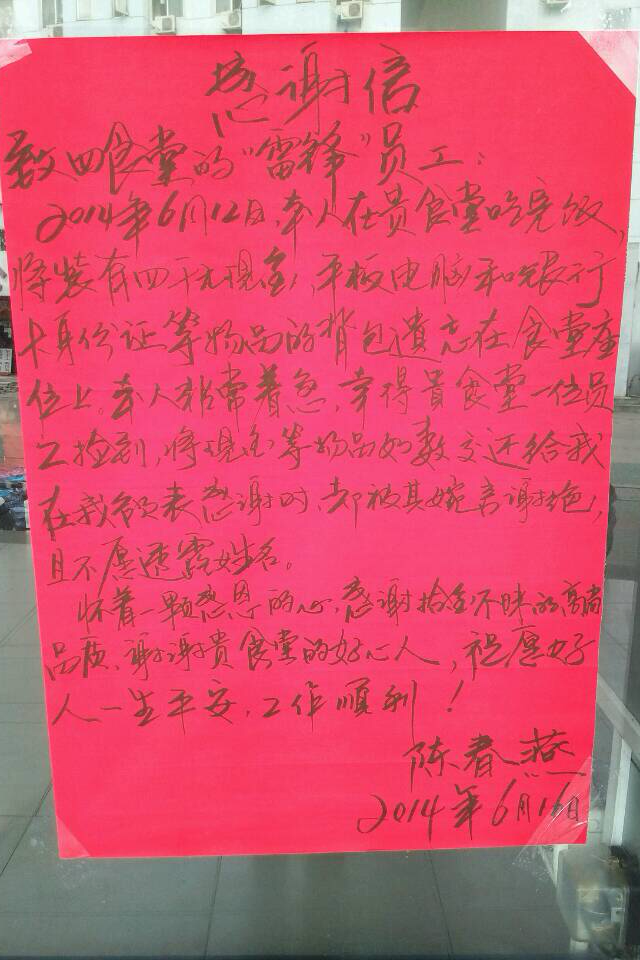 感谢信
致四食堂的“雷锋”员工：
2014年6月12日，本人在贵食堂吃完饭，
将装有四千元现金，平板电脑和银行
卡身份证等物品的背包遗忘在食堂座
位上。本人非常着急，幸得贵食堂一位员
工捡到，将现金等物品如数交还给我
在我欲表感谢时，却被其婉言谢绝，
且不愿透露姓名。
怀着一颗感恩的心，感谢拾金不昧的高尚
品质，谢谢贵食堂的好心人，祝愿好
人一生平安，工作顺利！
陈春燕
2014年6月16日